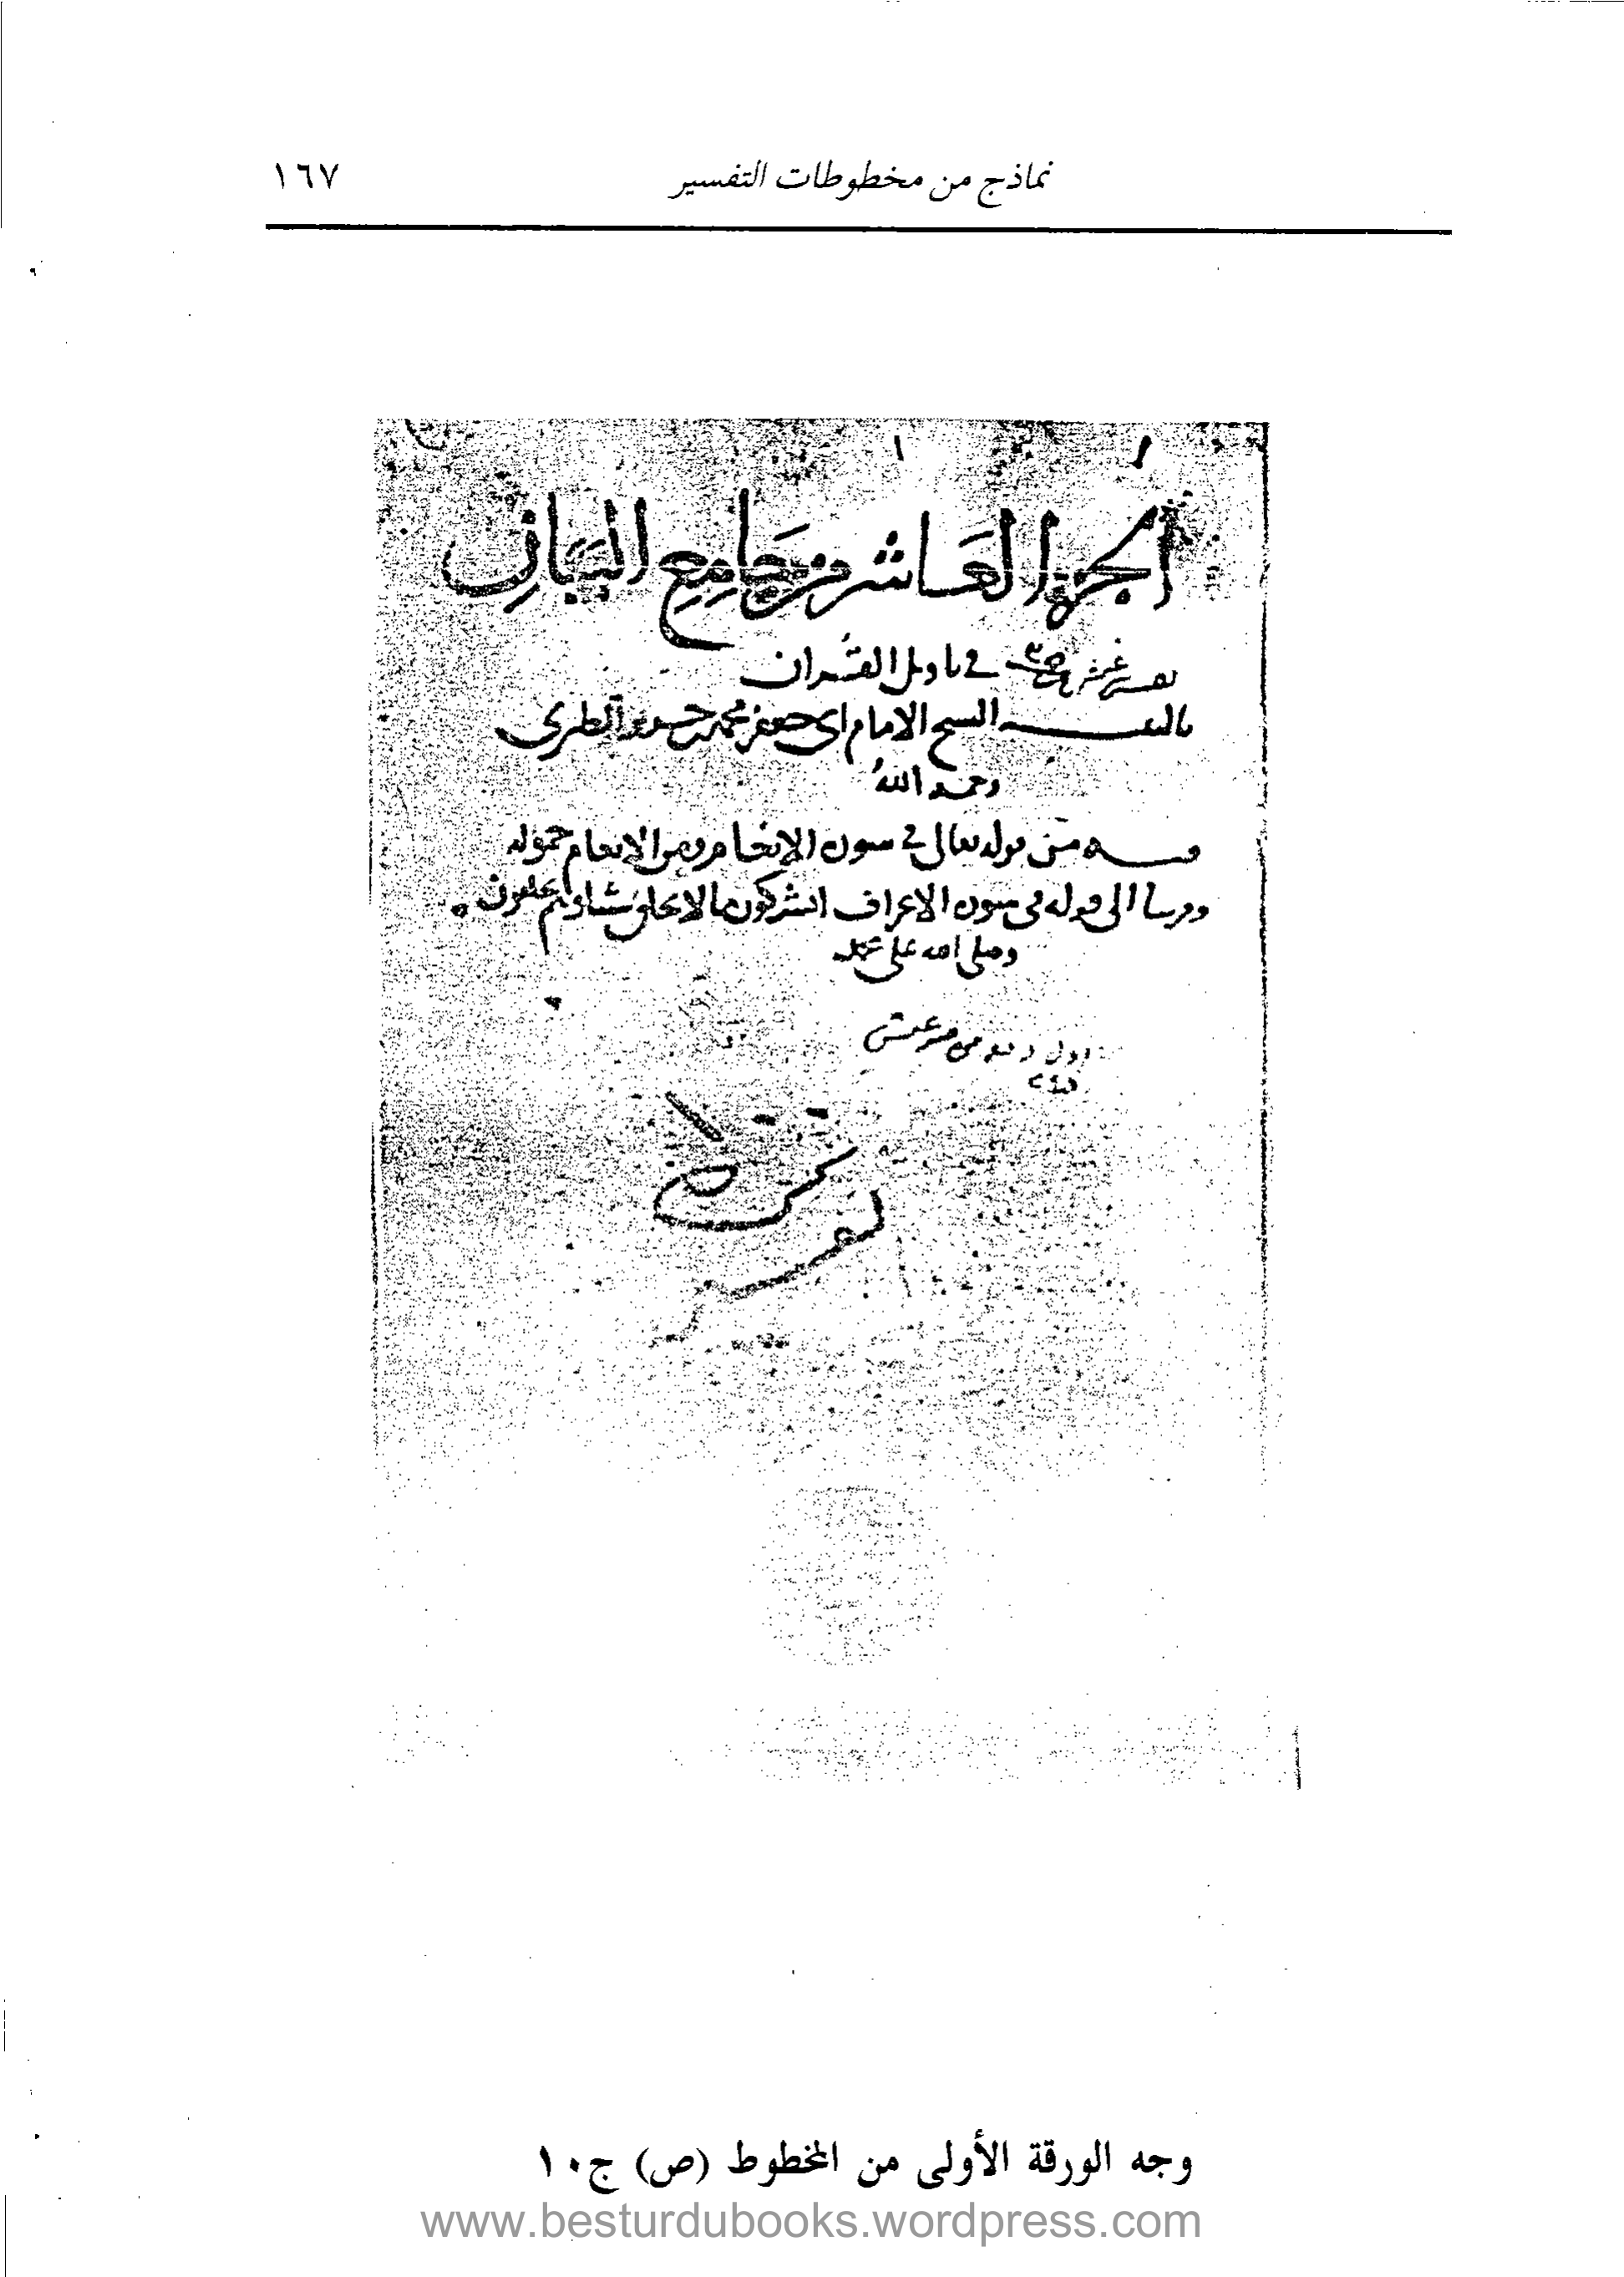 نماذج من مخطوطات التفسير ١٦٧
الجزء العاشر من جامع البيان
في تاويل القران
تاليف الشيخ الامام ابي جعفر محمد بن جرير الطبري
رحمه الله
فيه من قوله تعالى في سورة الانعام ومن الانعام حمولة
وفرشا الى قوله في سورة الاعراف ايشركون ما لا يخلق شيئا وهم يخلقون
وصلى الله على محمد
وجه الورقة الأولى من المخطوط (ص) ج١٠
www.besturdubooks.wordpress.com